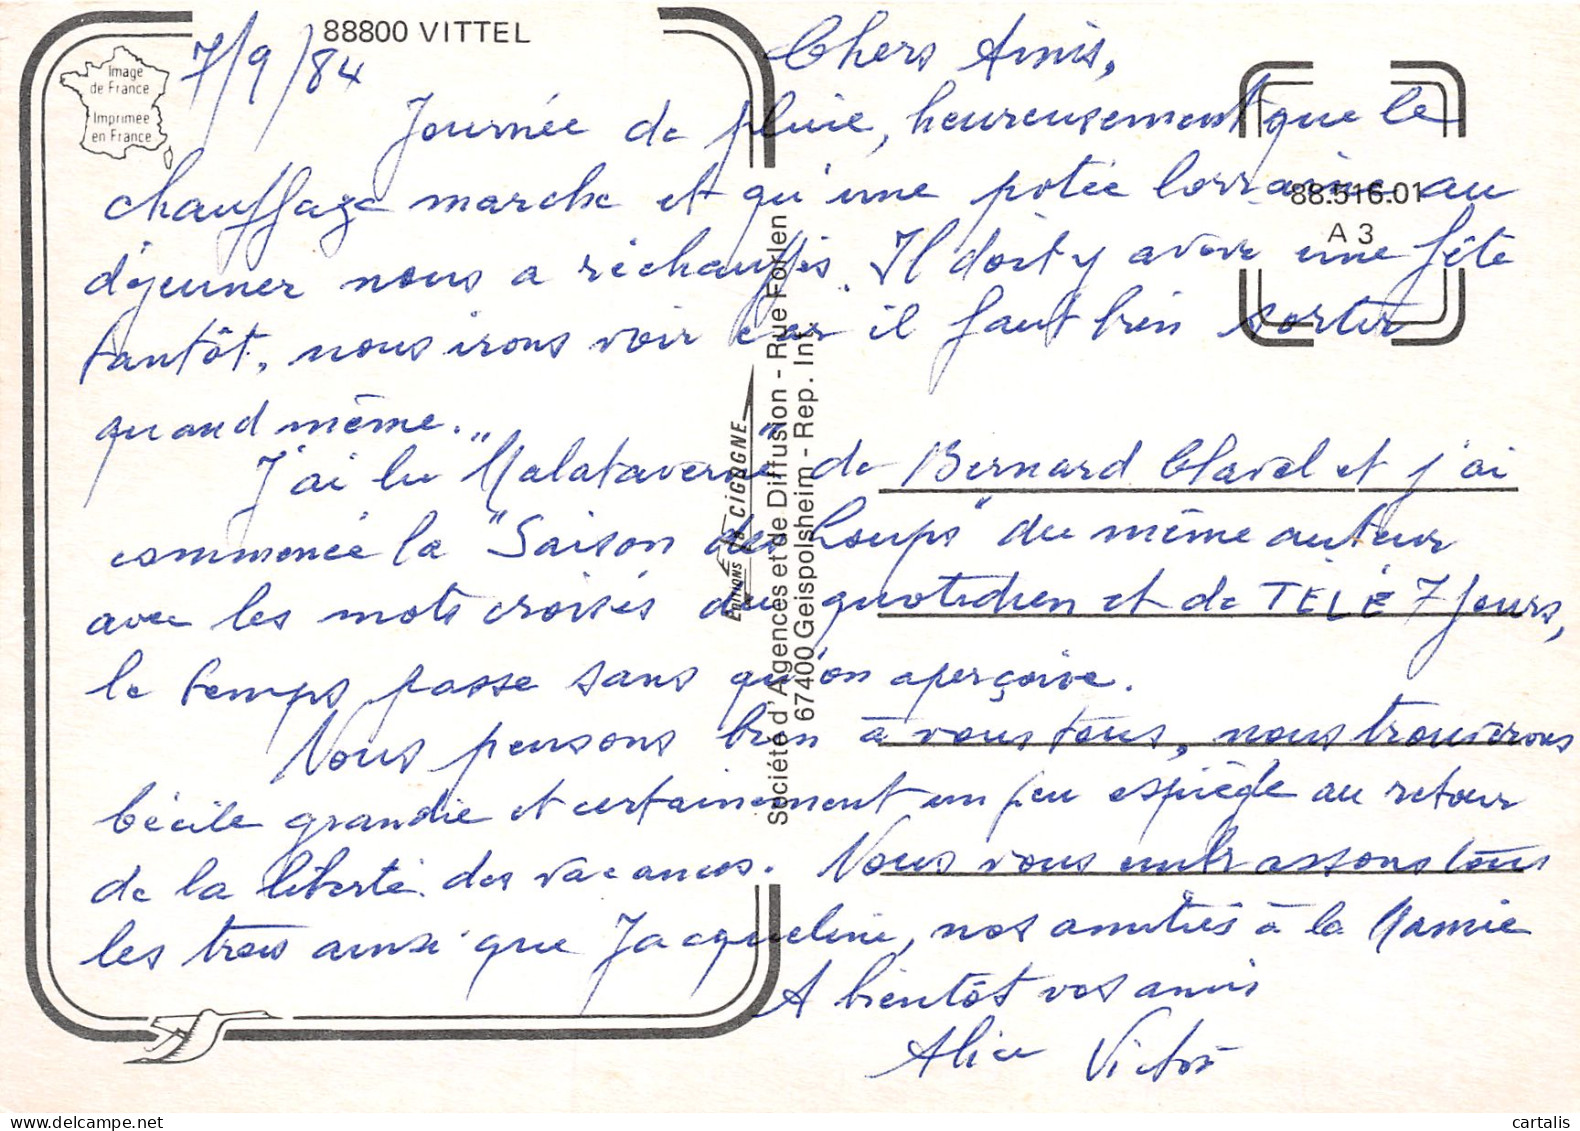 88800 VITTEL
Image
de France
Imprimée
en France
7/9/84
Chers Amis,
Journée de pluie, heureusement que le
chauffage marche et qu'une potée lorraine au
déjeuner nous a réchauffés. Il doit y avoir une fête
tantôt, nous irons voir car il faut bien sortir
quand même.
J'ai lu "Malataverne" de Bernard Clavel et j'ai
commencé la "Saison des Loups" du même auteur
avec les mots croisés du quotidien et de TÉLÉ 7 Jours,
le temps passe sans qu'on aperçoive.
Nous pensons bien à vous tous, nous trouverons
Cécile grandie et certainement un peu espiègle au retour
de la liberté des vacances. Nous vous embrassons tous
les trois ainsi que Jacqueline, nos amitiés à la Mamie
A bientôt vos amis
Alice Victor
88.516.01
A 3
EDITIONS LA CIGOGNE
Société d'Agences et de Diffusion - Rue Forlen
67400 Geispolsheim - Rep. Int.
cartalis